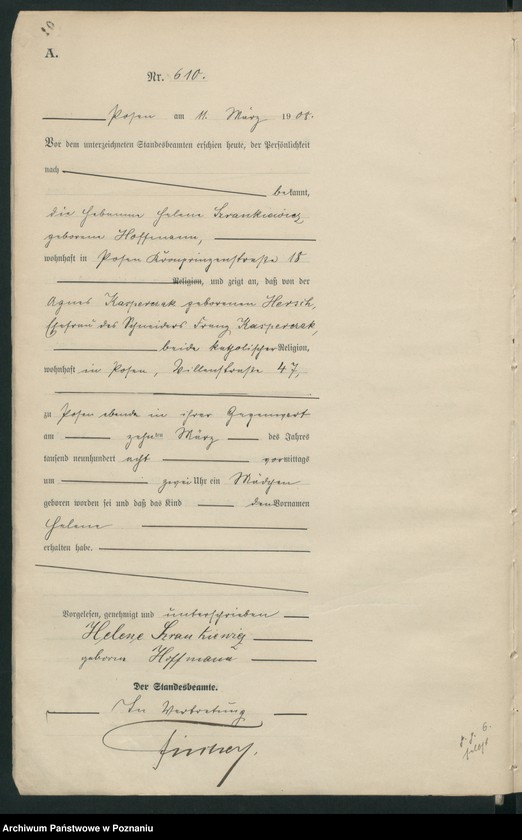 A.
Nr. 610.
Posen am 11. März 1908.
Vor dem unterzeichneten Standesbeamten erschien heute, der Persönlichkeit
nach
bekannt,
die Hebamme Helene Szrankiewicz
geborene Hoffmann,
wohnhaft in Posen Kronprinzenstraße 18
Religion, und zeigt an, daß von der
Agnes Kasperczak geborenen Hersch,
Ehefrau des Schneiders Franz Kasperczak,
beide katholischer Religion,
wohnhaft in Posen, 47,
zu Posen ebenda in ihrer Gegenwart
am zehnten März des Jahres
tausend neunhundert acht vormittags
um zwei Uhr ein Mädchen
geboren worden sei und daß das Kind den Vornamen
Helene
erhalten habe.
Vorgelesen, genehmigt und unterschrieben
Helene Szrankiewicz
geboren Hoffmann
Der Standesbeamte.
In Vertretung
Archiwum Państwowe w Poznaniu